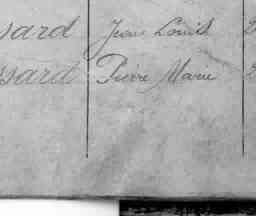 ssard Jean Louis 2
ssard Pierre Marie 2